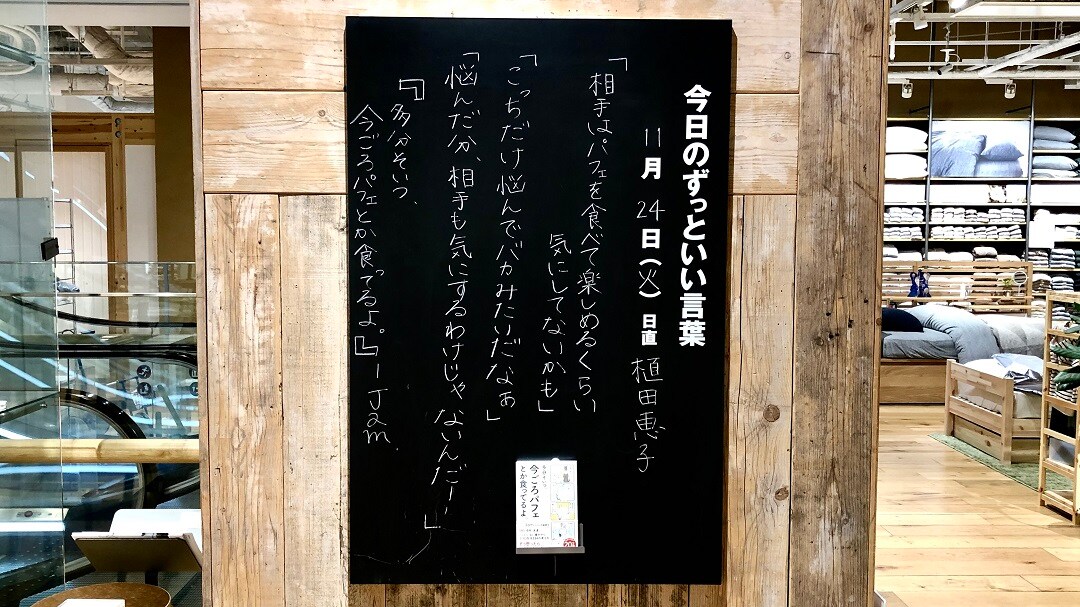 今日のずっといい言葉
11月24日(火) 日直 植田恵子
「相手はパフェを食べて楽しめるくらい
気にしてないかも」
「こっちだけ悩んでバカみたいだなぁ」
「悩んだ分、相手も気にするわけじゃないんだー」
『多分そいつ、
今ごろパフェとか食ってるよ。』－Jam.
多分そいつ、
今ごろパフェ
とか食ってるよ